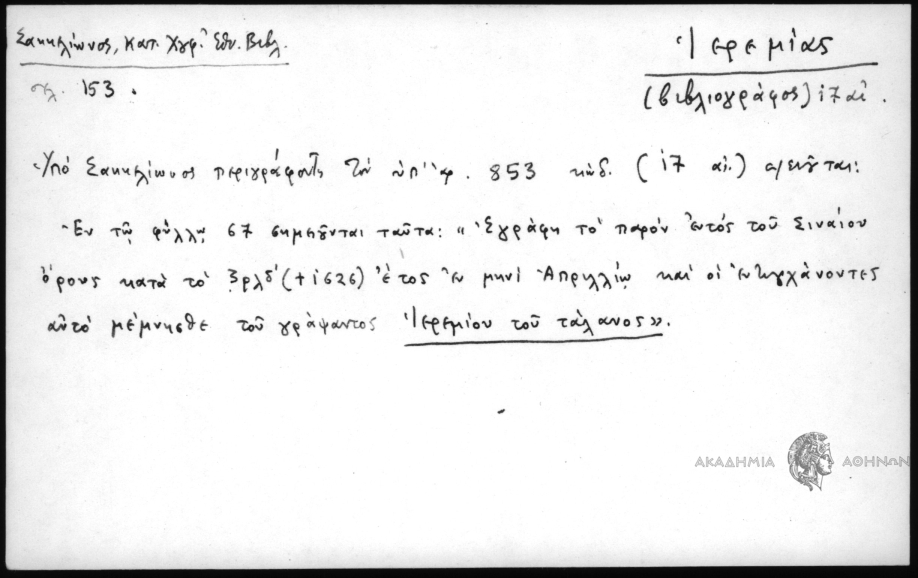 Σακκελίωνος, Κατ. Χγφ. Ἐθν. Βιβλ.
σελ. 153.
Ἱερεμίας
(βιβλιογράφος) 17 αἰ.
Ὑπὸ Σακκελίωνος περιγράφοντος τὸν ὑπ' ἀρ. 853 κώδ. (17 αἰ.)
Ἐν τῷ φύλλῳ 67 σημειοῦνται ταῦτα: «Ἐγράφη τὸ παρὸν ἐντός τοῦ Σιναίου
ὄρους κατὰ τὸ ζρλδ' (+1626) ἔτος ἐν μηνὶ Ἀπριλλίῳ καὶ οἱ ἐντυγχάνοντες
αὐτὸ μέμνησθε τοῦ γράψαντος Ἱερεμίου τοῦ τάλανος».
ΑΚΑΔΗΜΙΑ ΑΘΗΝΩΝ